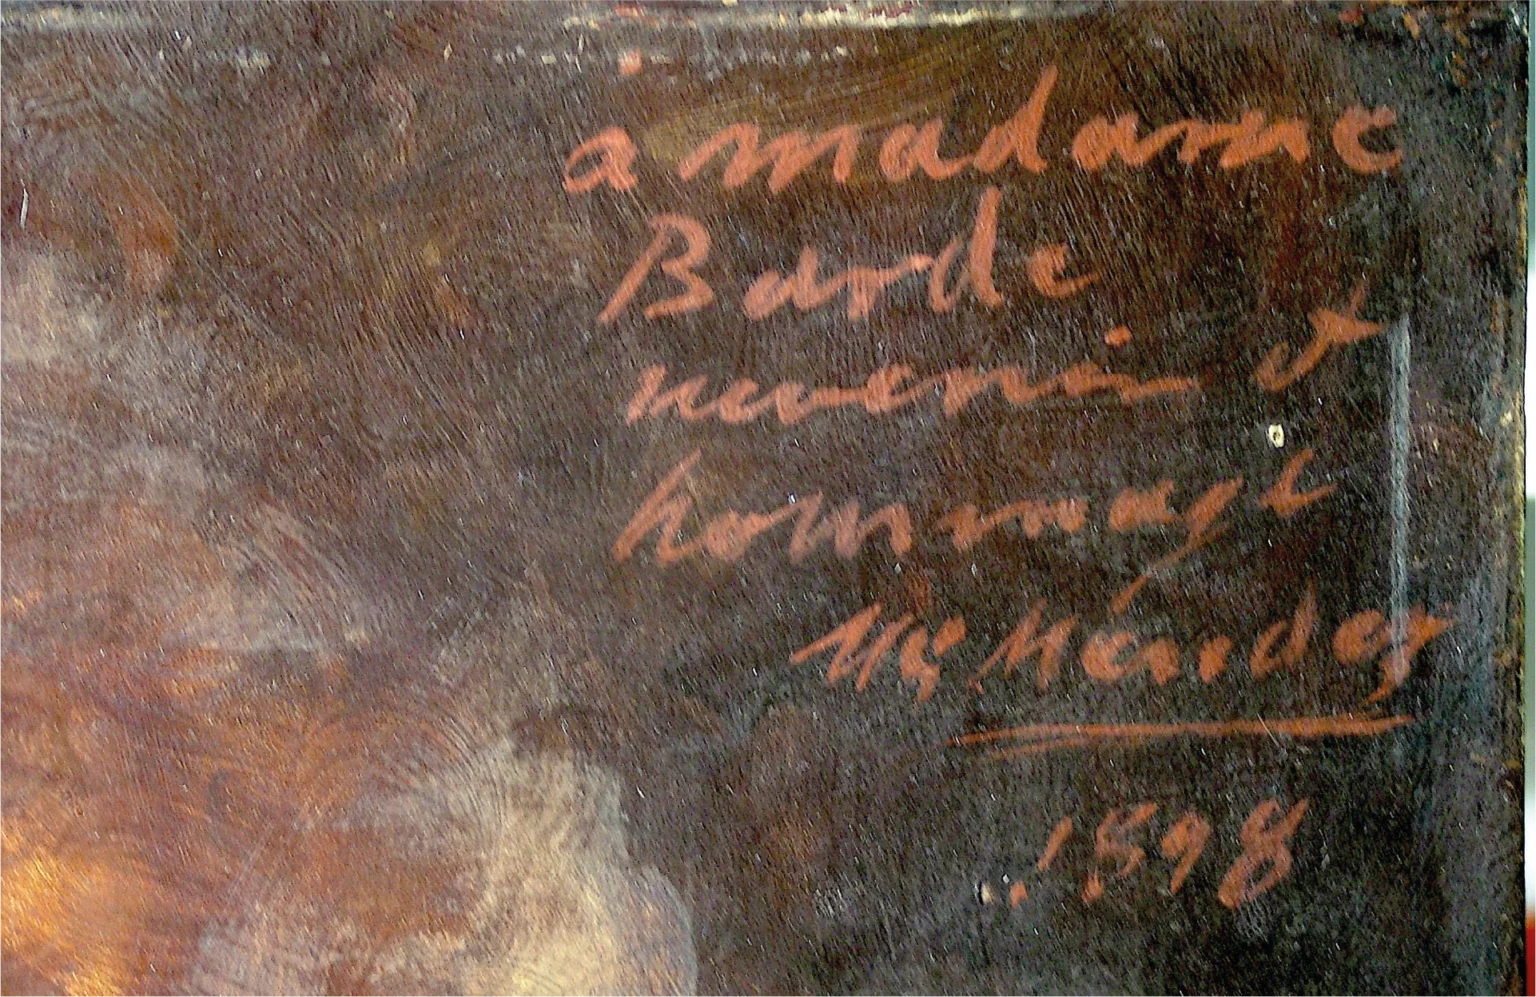 a madame
Barde
souvenir et
hommage
Mendez
1898